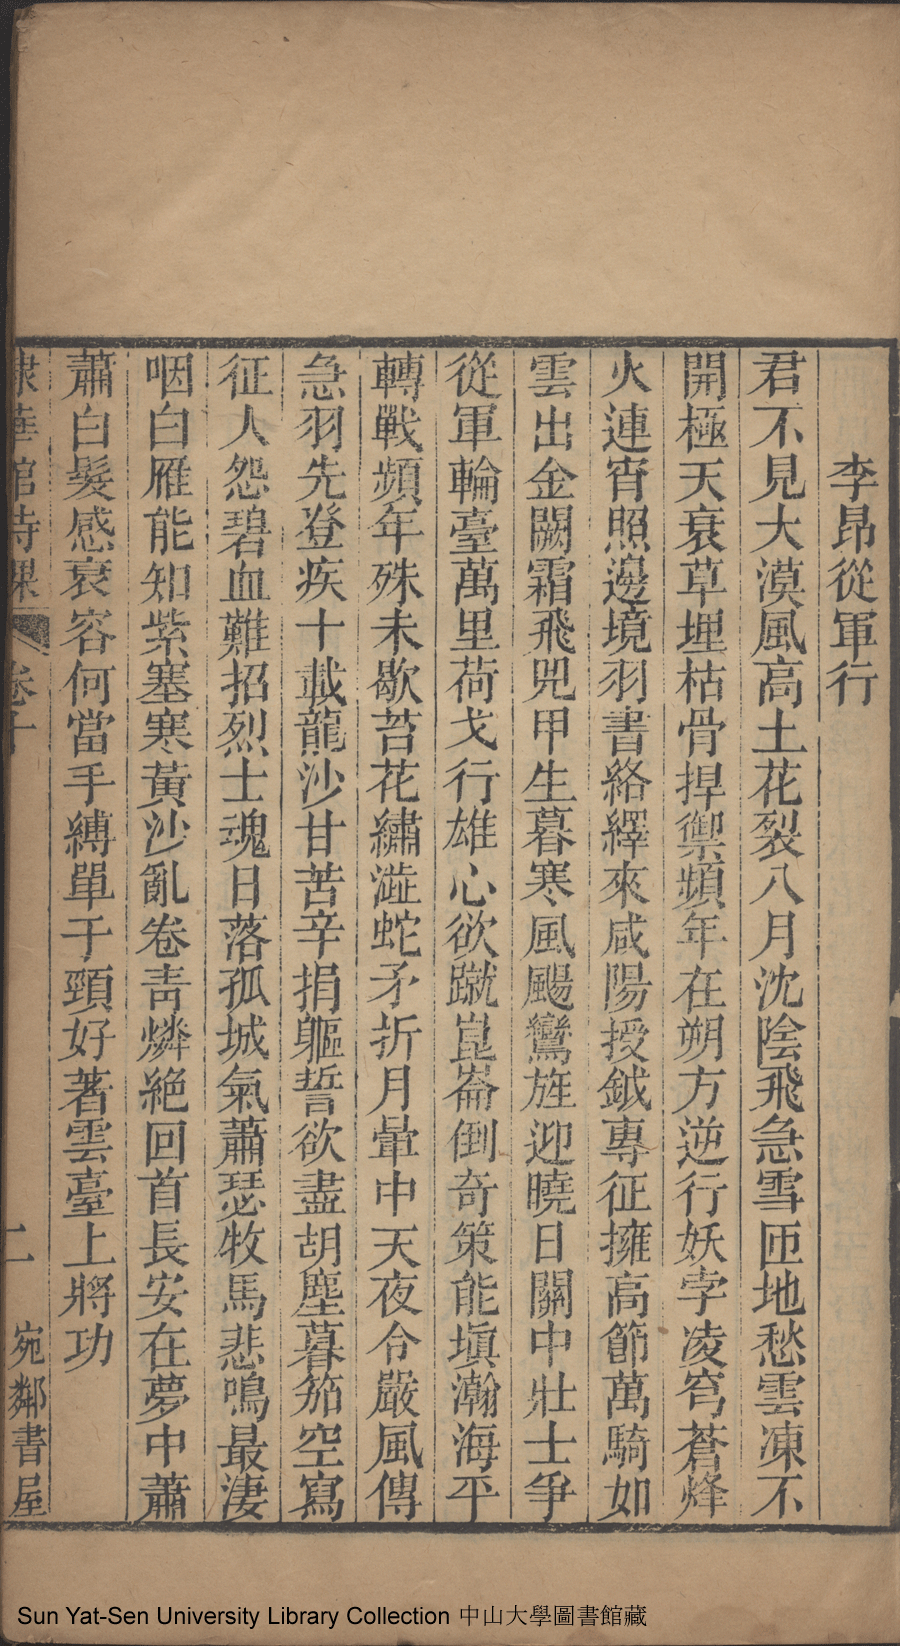 李昂從軍行
君不見大漠風高土花裂八月沈陰飛急雪匝地愁雲凍不
開極天衰草埋枯骨捍禦頻年在朔方逆行妖孛凌穹蒼烽
火連宵照邊境羽書絡繹來咸陽授鉞專征擁高節萬騎如
雲出金闕霜飛兜甲生暮寒風颺鸞旌迎曉日關中壯士爭
從軍輪臺萬里荷戈行雄心欲蹴崑崙倒奇策能塡瀚海平
轉戰頻年殊未歇苔花繡澁蛇矛折月暈中天夜令嚴風傳
急羽先登疾十載龍沙甘苦辛捐軀誓欲盡胡塵暮笳空寫
征人怨碧血難招烈士魂日落孤城氣蕭瑟牧馬悲鳴最淒
咽白雁能知紫塞寒黃沙亂卷靑燐絕回首長安在夢中蕭
蕭白髮感衰容何當手縛單于頸好著雲臺上將功
館詩課 卷十 二 宛鄰書屋
Sun Yat-Sen University Library Collection 中山大學圖書館藏